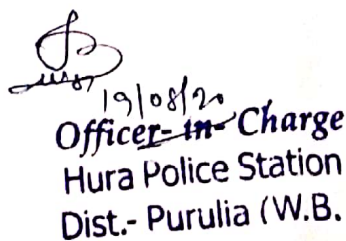 19/08/20
Officer-in-Charge
Hura Police Station
Dist.- Purulia (W.B.